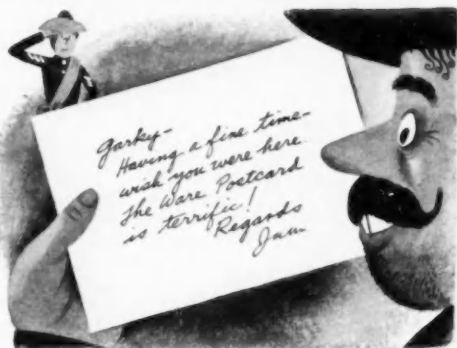 Garky-
Having a fine time-
wish you were here.
The Ware Postcard
is terrific!
Regards